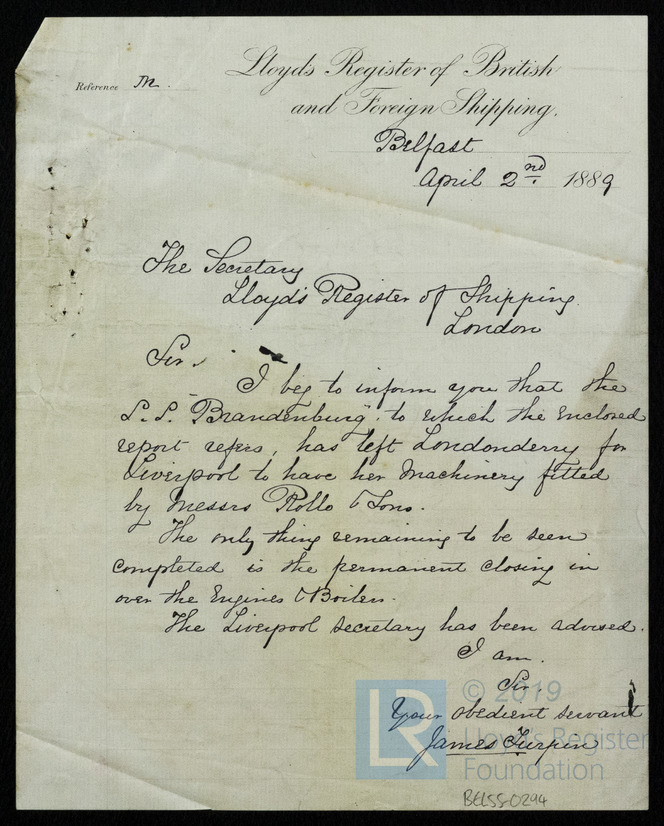 Lloyd's Register of British
Reference M.
and Foreign Shipping.
Belfast
April 2nd 1889
The Secretary
Lloyd's Register of Shipping
London
Sir,
I beg to inform you that the
S.S. "Brandenburg" to which the enclosed
report refers, has left Londonderry for
Liverpool to have her Machinery fitted
by Messrs Rollo & Sons.
The only thing remaining to be seen
completed is the permanent closing in
over the Engines & Boilers.
The Liverpool secretary has been advised.
I am.
Sir,
Your obedient servant
James Turpin
© 2019
Lloyd's Register
Foundation
LR
BELSS-0294